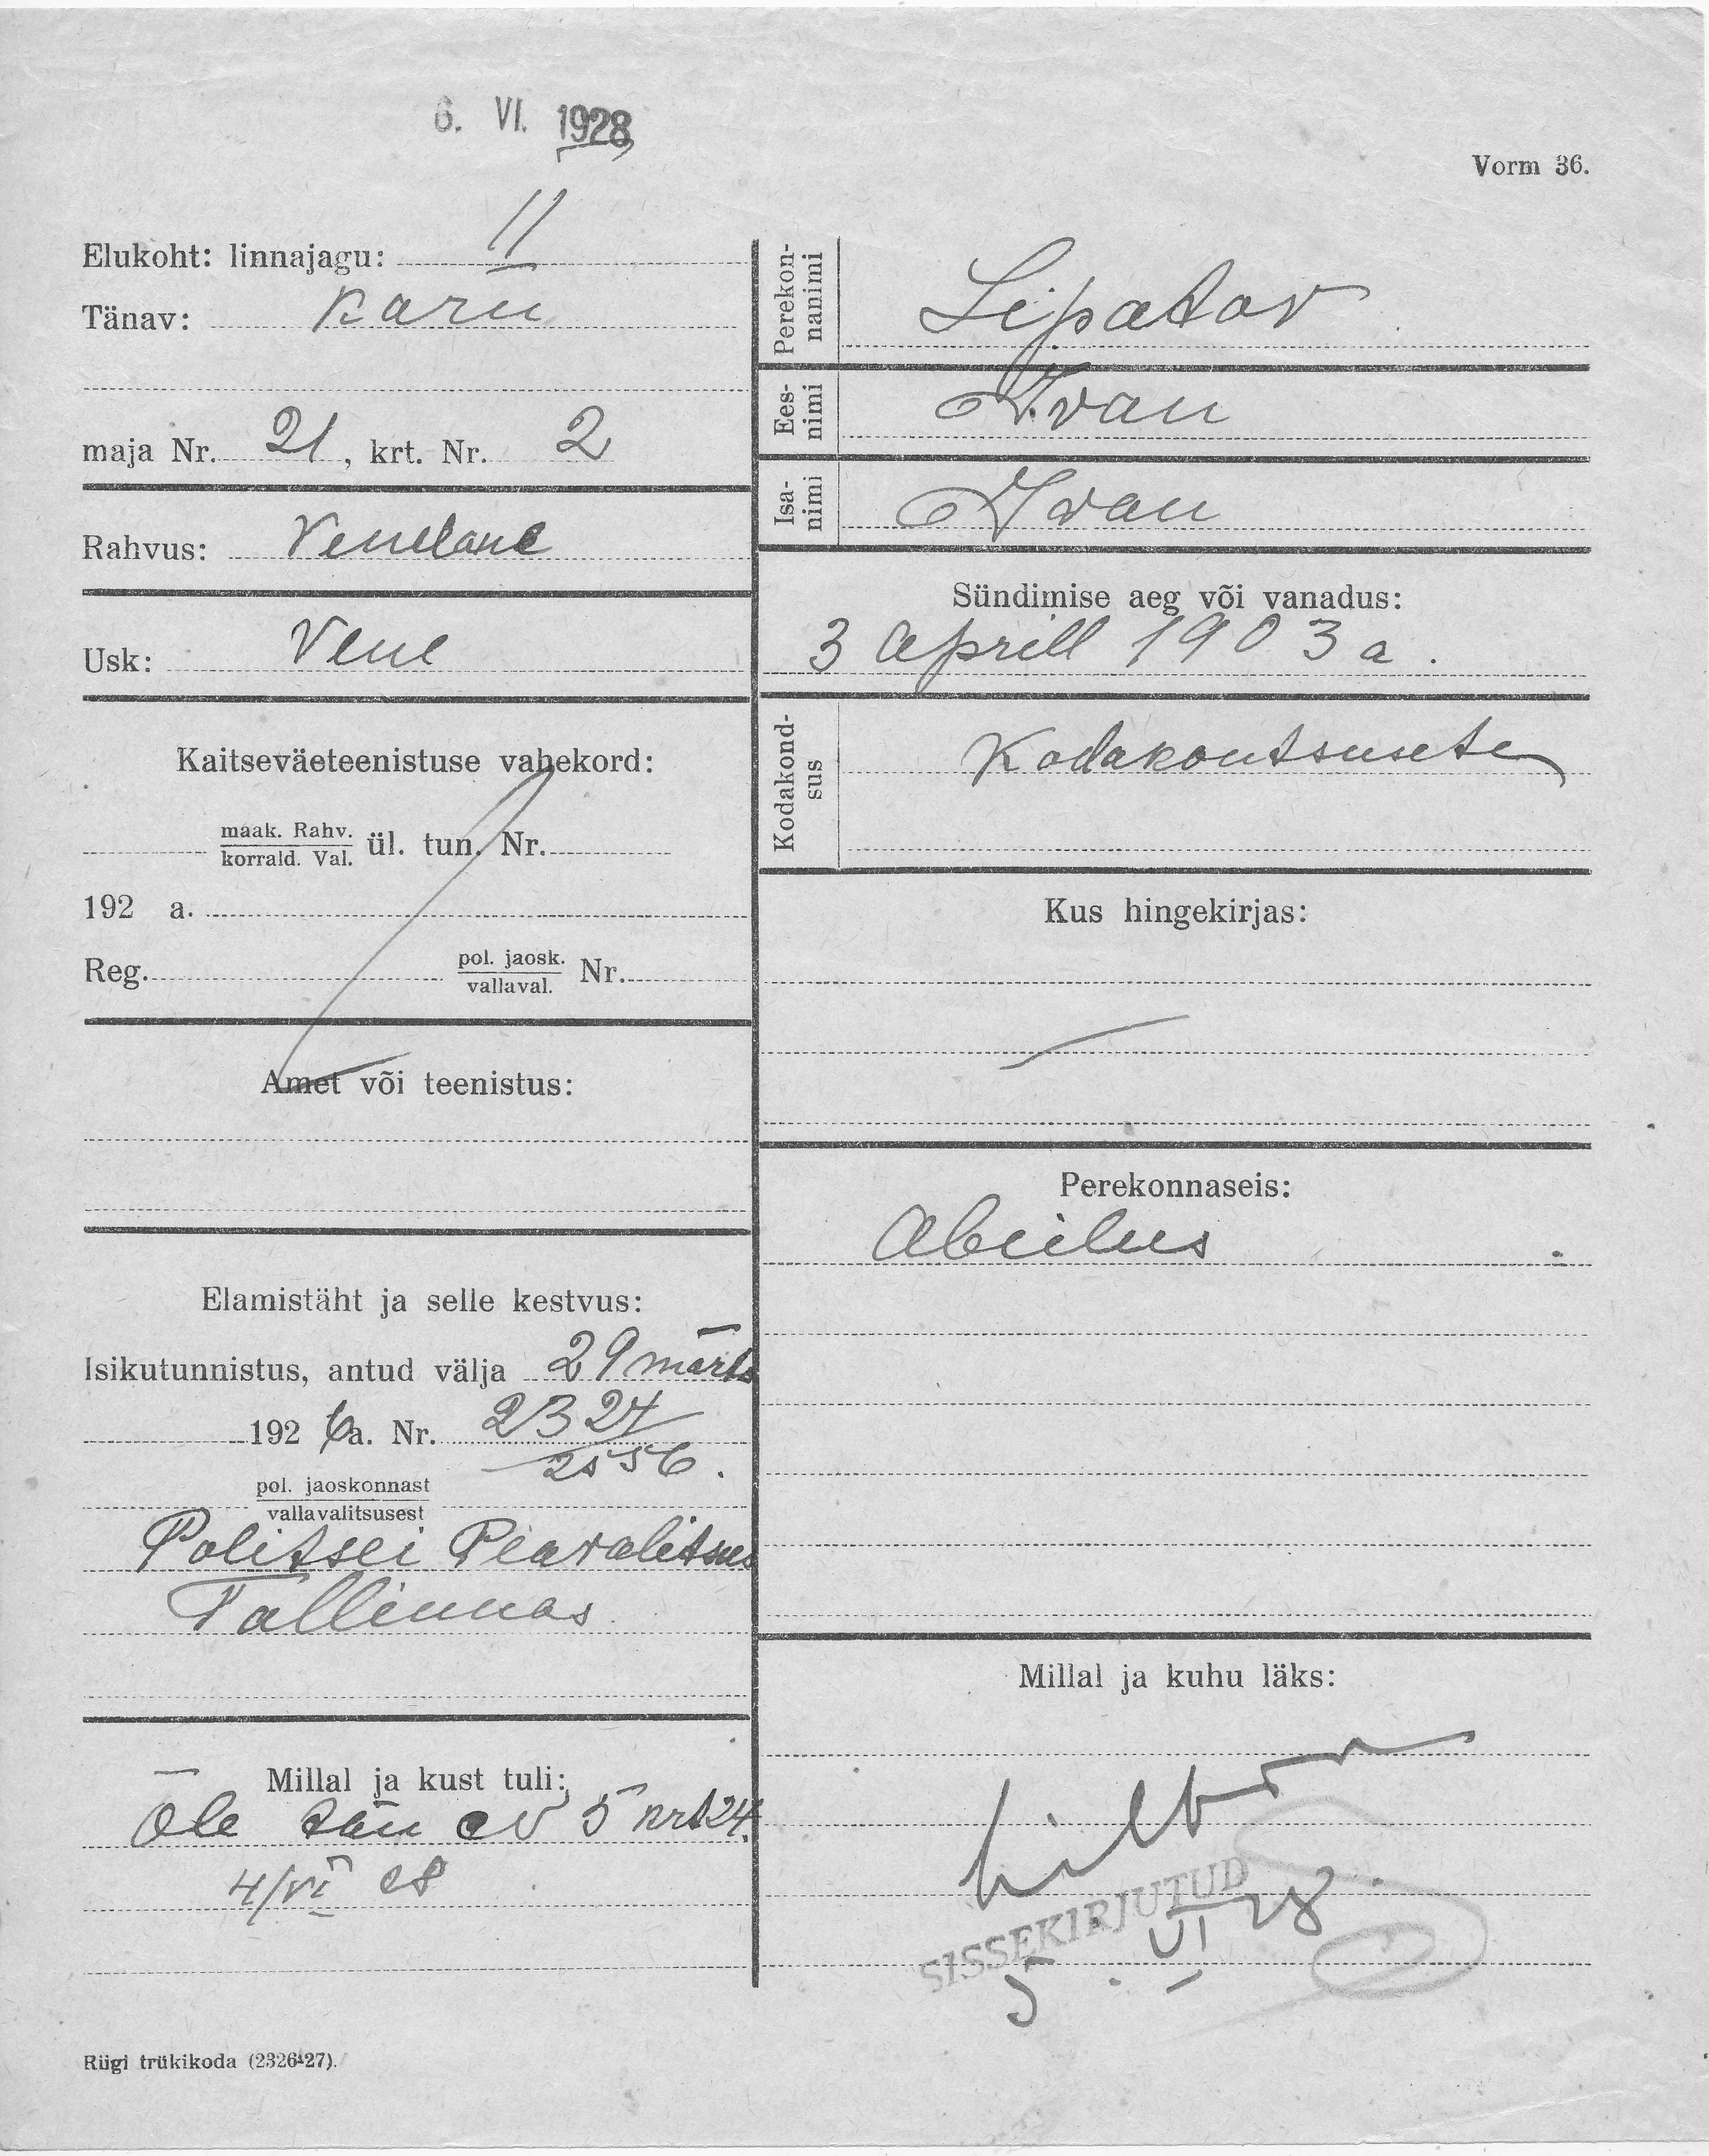 6. VI. 1928
Vorm 36.
Elukoht: linnajagu: II
Tänav: Karu
maja Nr. 21, krt. Nr. 2
Rahvus: Venelane
Usk: Vene
Kaitseväeteenistuse vahekord:
maak. Rahv.
korrald. Val. ül. tun. Nr.
192 a.
Reg. pol. jaosk.
vallaval. Nr.
Amet või teenistus:
Elamistäht ja selle kestvus:
Isikutunnistus, antud välja 29 märts
192 6 a. Nr. 2324
2556.
pol. jaoskonnast
vallavalitsusest
Politsei Peavalitsus
Tallinnas
Millal ja kust tuli:
Õle tän 5 krt 24.
4/VI 28
Riigi trükikoda (2326-27).
Perekonnanimi
Lipatov
Eesnimi
Ivan
Isanimi
Ivan
Sündimise aeg või vanadus:
3 aprill 1903 a.
Kodakondsus
Kodakontsuseta
Kus hingekirjas:
Perekonnaseis:
Abielus
Millal ja kuhu läks:
SISSEKIRJUTUD
5. VI 28